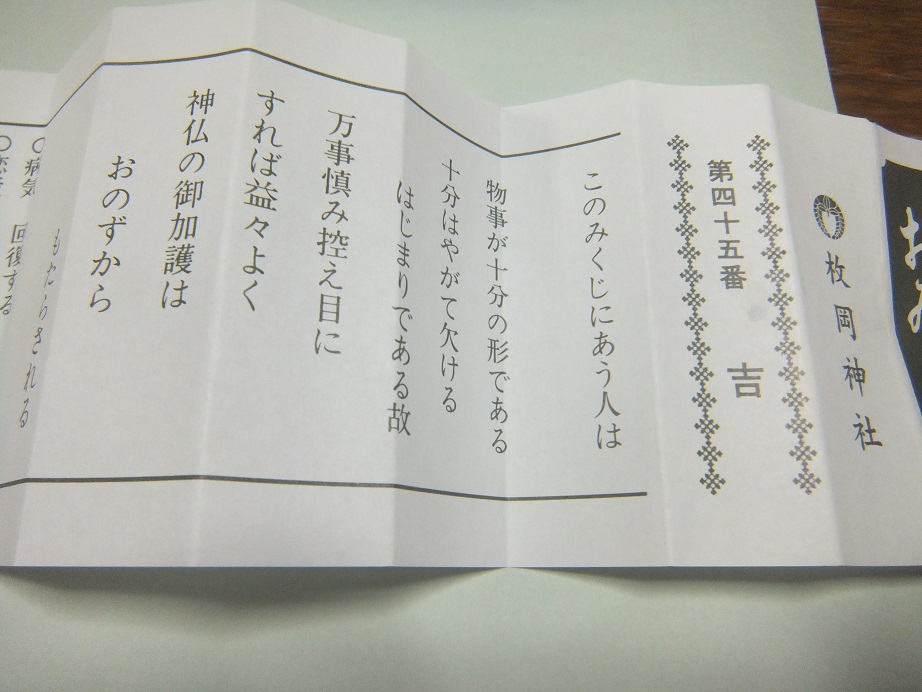 おみ
枚岡神社
第四十五番 吉
このみくじにあう人は
物事が十分の形である
十分はやがて欠ける
はじまりである故
万事慎み控え目に
すれば益々よく
神仏の御加護は
おのずから
もたらされる
○病気 回復する